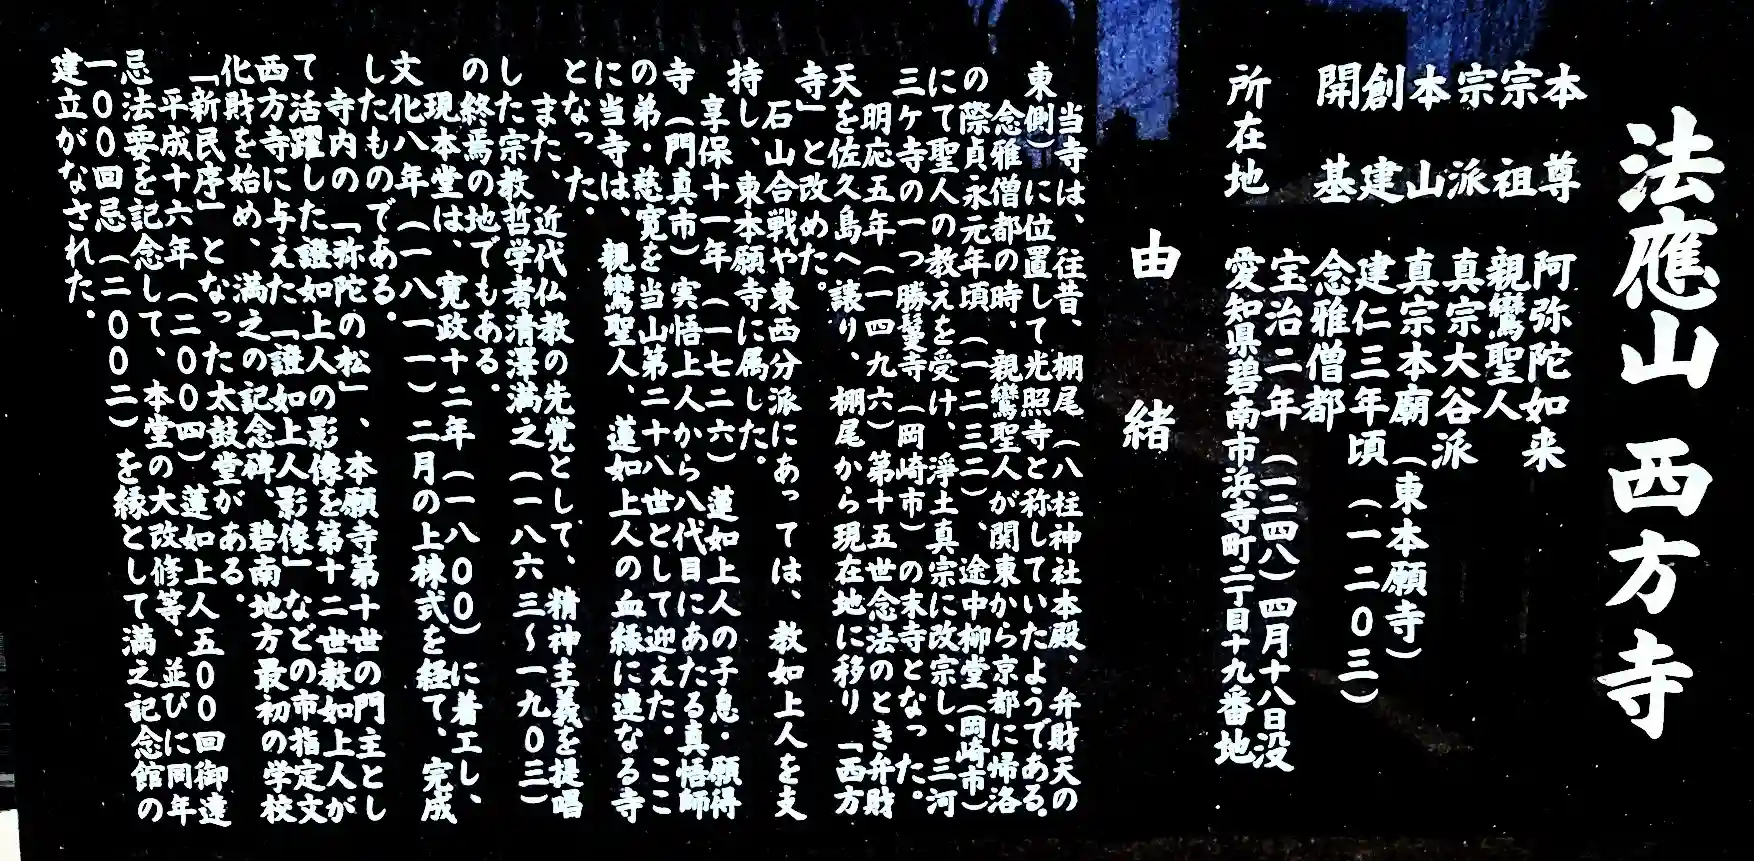 法應山 西方寺
本尊 阿弥陀如来
宗祖 親鸞聖人
宗派 真宗大谷派
本山 真宗本廟（東本願寺）
創建 建仁三年頃（一二０三）
開基 念雅僧都
宝治二年（一二四八）四月十八日没
所在地 愛知県碧南市浜寺町二丁目十九番地
由緒
当寺は、往昔、棚尾（八柱神社本殿、弁財天の
東側）に位置して光照寺と称していたようである。
念雅僧都の時、親鸞聖人が関東から京都に帰洛
の際貞永元年頃（一二三二）、途中柳堂（岡崎市）
にて聖人の教えを受け、淨土真宗に改宗し、三河
三ケ寺の一つ勝鬘寺（岡崎市）の末寺となった。
明応五年（一四九六）第十五世念法のとき弁財
天を佐久島へ譲り、棚尾から現在地に移り「西方
寺」と改めた。
石山合戦や東西分派にあっては、教如上人を支
持し、東本願寺に属した。
享保十一年（一七二六）蓮如上人の子息・願得
寺（門真市）実悟上人から八代目にあたる真悟師
の弟・慈寛を当山第二十八世として迎えた。ここ
に当寺は、親鸞聖人、蓮如上人の血縁に連なる寺
となった。
また、近代仏教の先覚として、精神主義を提唱
した宗教哲学者清澤満之（一八六三～一九０三）
の終焉の地でもある。
現本堂は、寛政十二年（一八００）に着工し、
文化八年（一八一一）二月の上棟式を経て、完成
したものである。
寺内の「弥陀の松」、本願寺第十世の門主とし
て活躍した證如上人の影像を第十二世教如上人が
西方寺に与えた「證如上人影像」などの市指定文
化財を始め、満之の記念碑、碧南地方最初の学校
「新民序」となった太鼓堂がある。
平成十六年（二００四）蓮如上人五００回御遠
忌法要を記念して、本堂の大改修等、並びに同年
一００回忌（二００二）を縁として満之記念館の
建立がなされた。